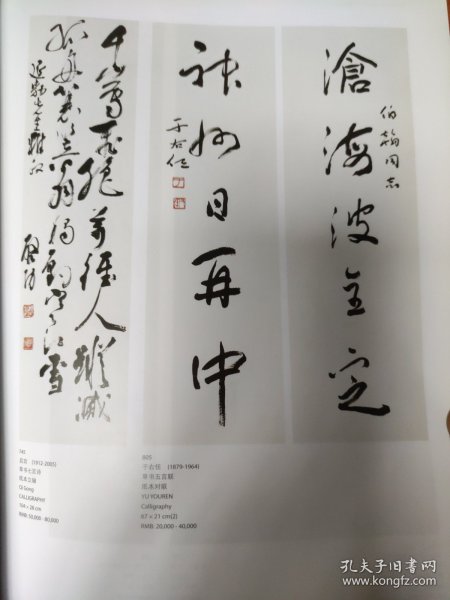 滄海波全定
伯翰同志
神州日再中
于右任
千山鳥飛絕萬徑人蹤滅
孤舟蓑笠翁獨釣寒江雪
先生雅
启功
启功 (1912-2005)
草书七言诗
纸本立轴
Qi Gong
CALLIGRAPHY
104 × 28 cm
RMB: 50,000 - 80,000
805
于右任 (1879-1964)
草书五言联
纸本对联
YU YOUREN
Calligraphy
67 × 21 cm(2)
RMB: 20,000 - 40,000
孔夫子旧书网
www.kongfz.com